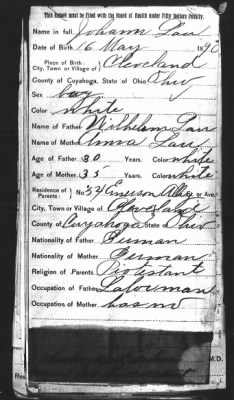 This Record must be Filed with the Board of Health under Fifty Dollars Penalty.
Name in full, Johann Lau
Date of Birth 16 May 1890
Place of Birth
City, Town, or Village of Cleveland
County of Cuyahoga, State of Ohio Ohio
Sex boy
Color white
Name of Father Wilhelm Lau
Name of Mother Anna Lau
Age of Father 30 Years. Color white
Age of Mother 35 Years. Color white
Residence of Parents: No 34 Emerson St. or Ave.
City, Town or Village of Cleveland
County of Cuyahoga State of Ohio
Nationality of Father German
Nationality of Mother German
Religion of Parents Protestant
Occupation of Father Laborman
Occupation of Mother has no
M.D.
Res